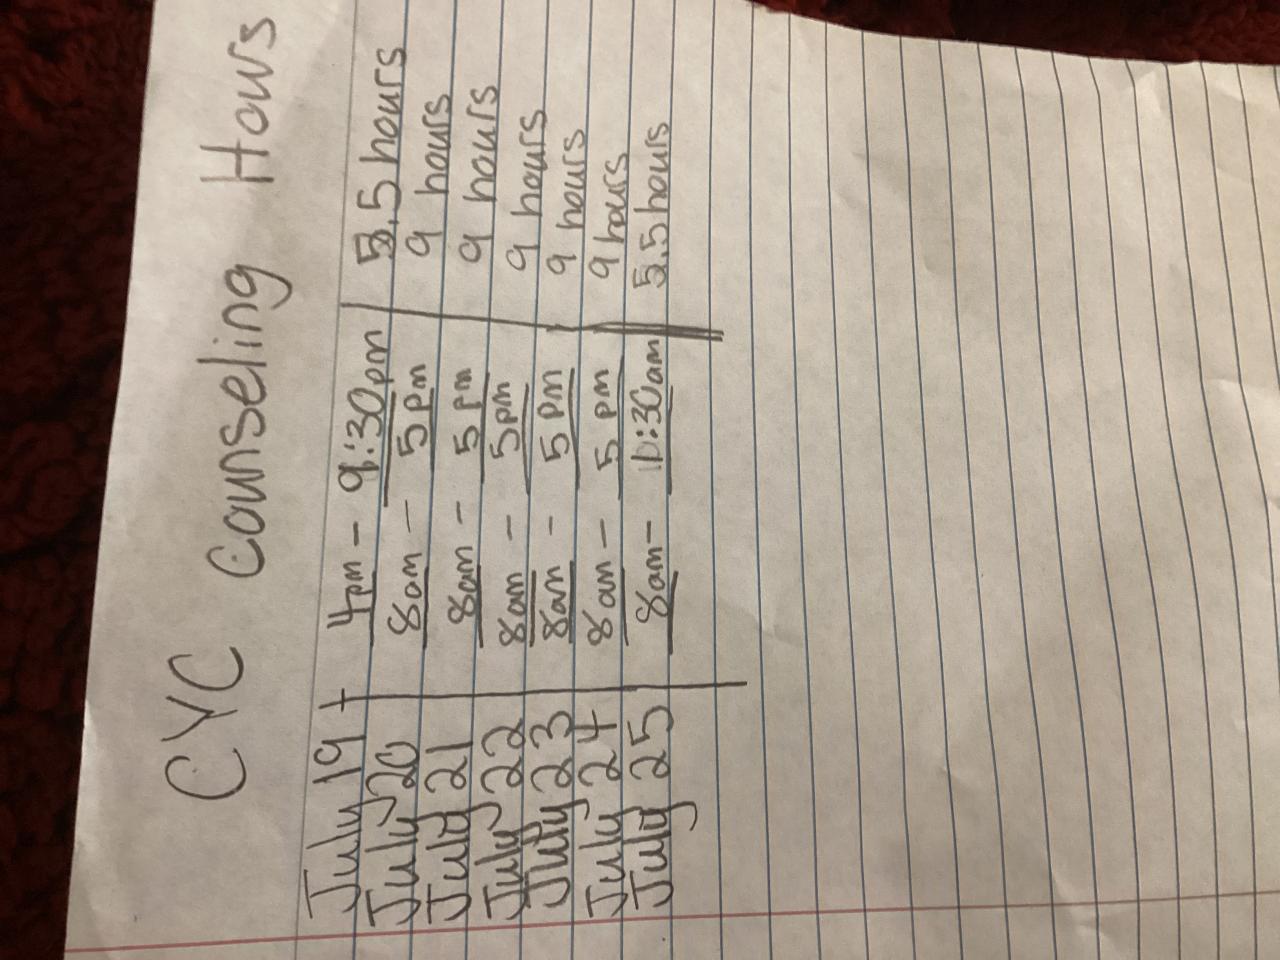 CYC Counseling Hours
July 19 4pm - 9:30pm 5.5 hours
July 20 8am - 5pm 9 hours
July 21 8am - 5pm 9 hours
July 22 8am - 5pm 9 hours
July 23 8am - 5pm 9 hours
July 24 8am - 5pm 9 hours
July 25 8am - :30am 5.5 hours